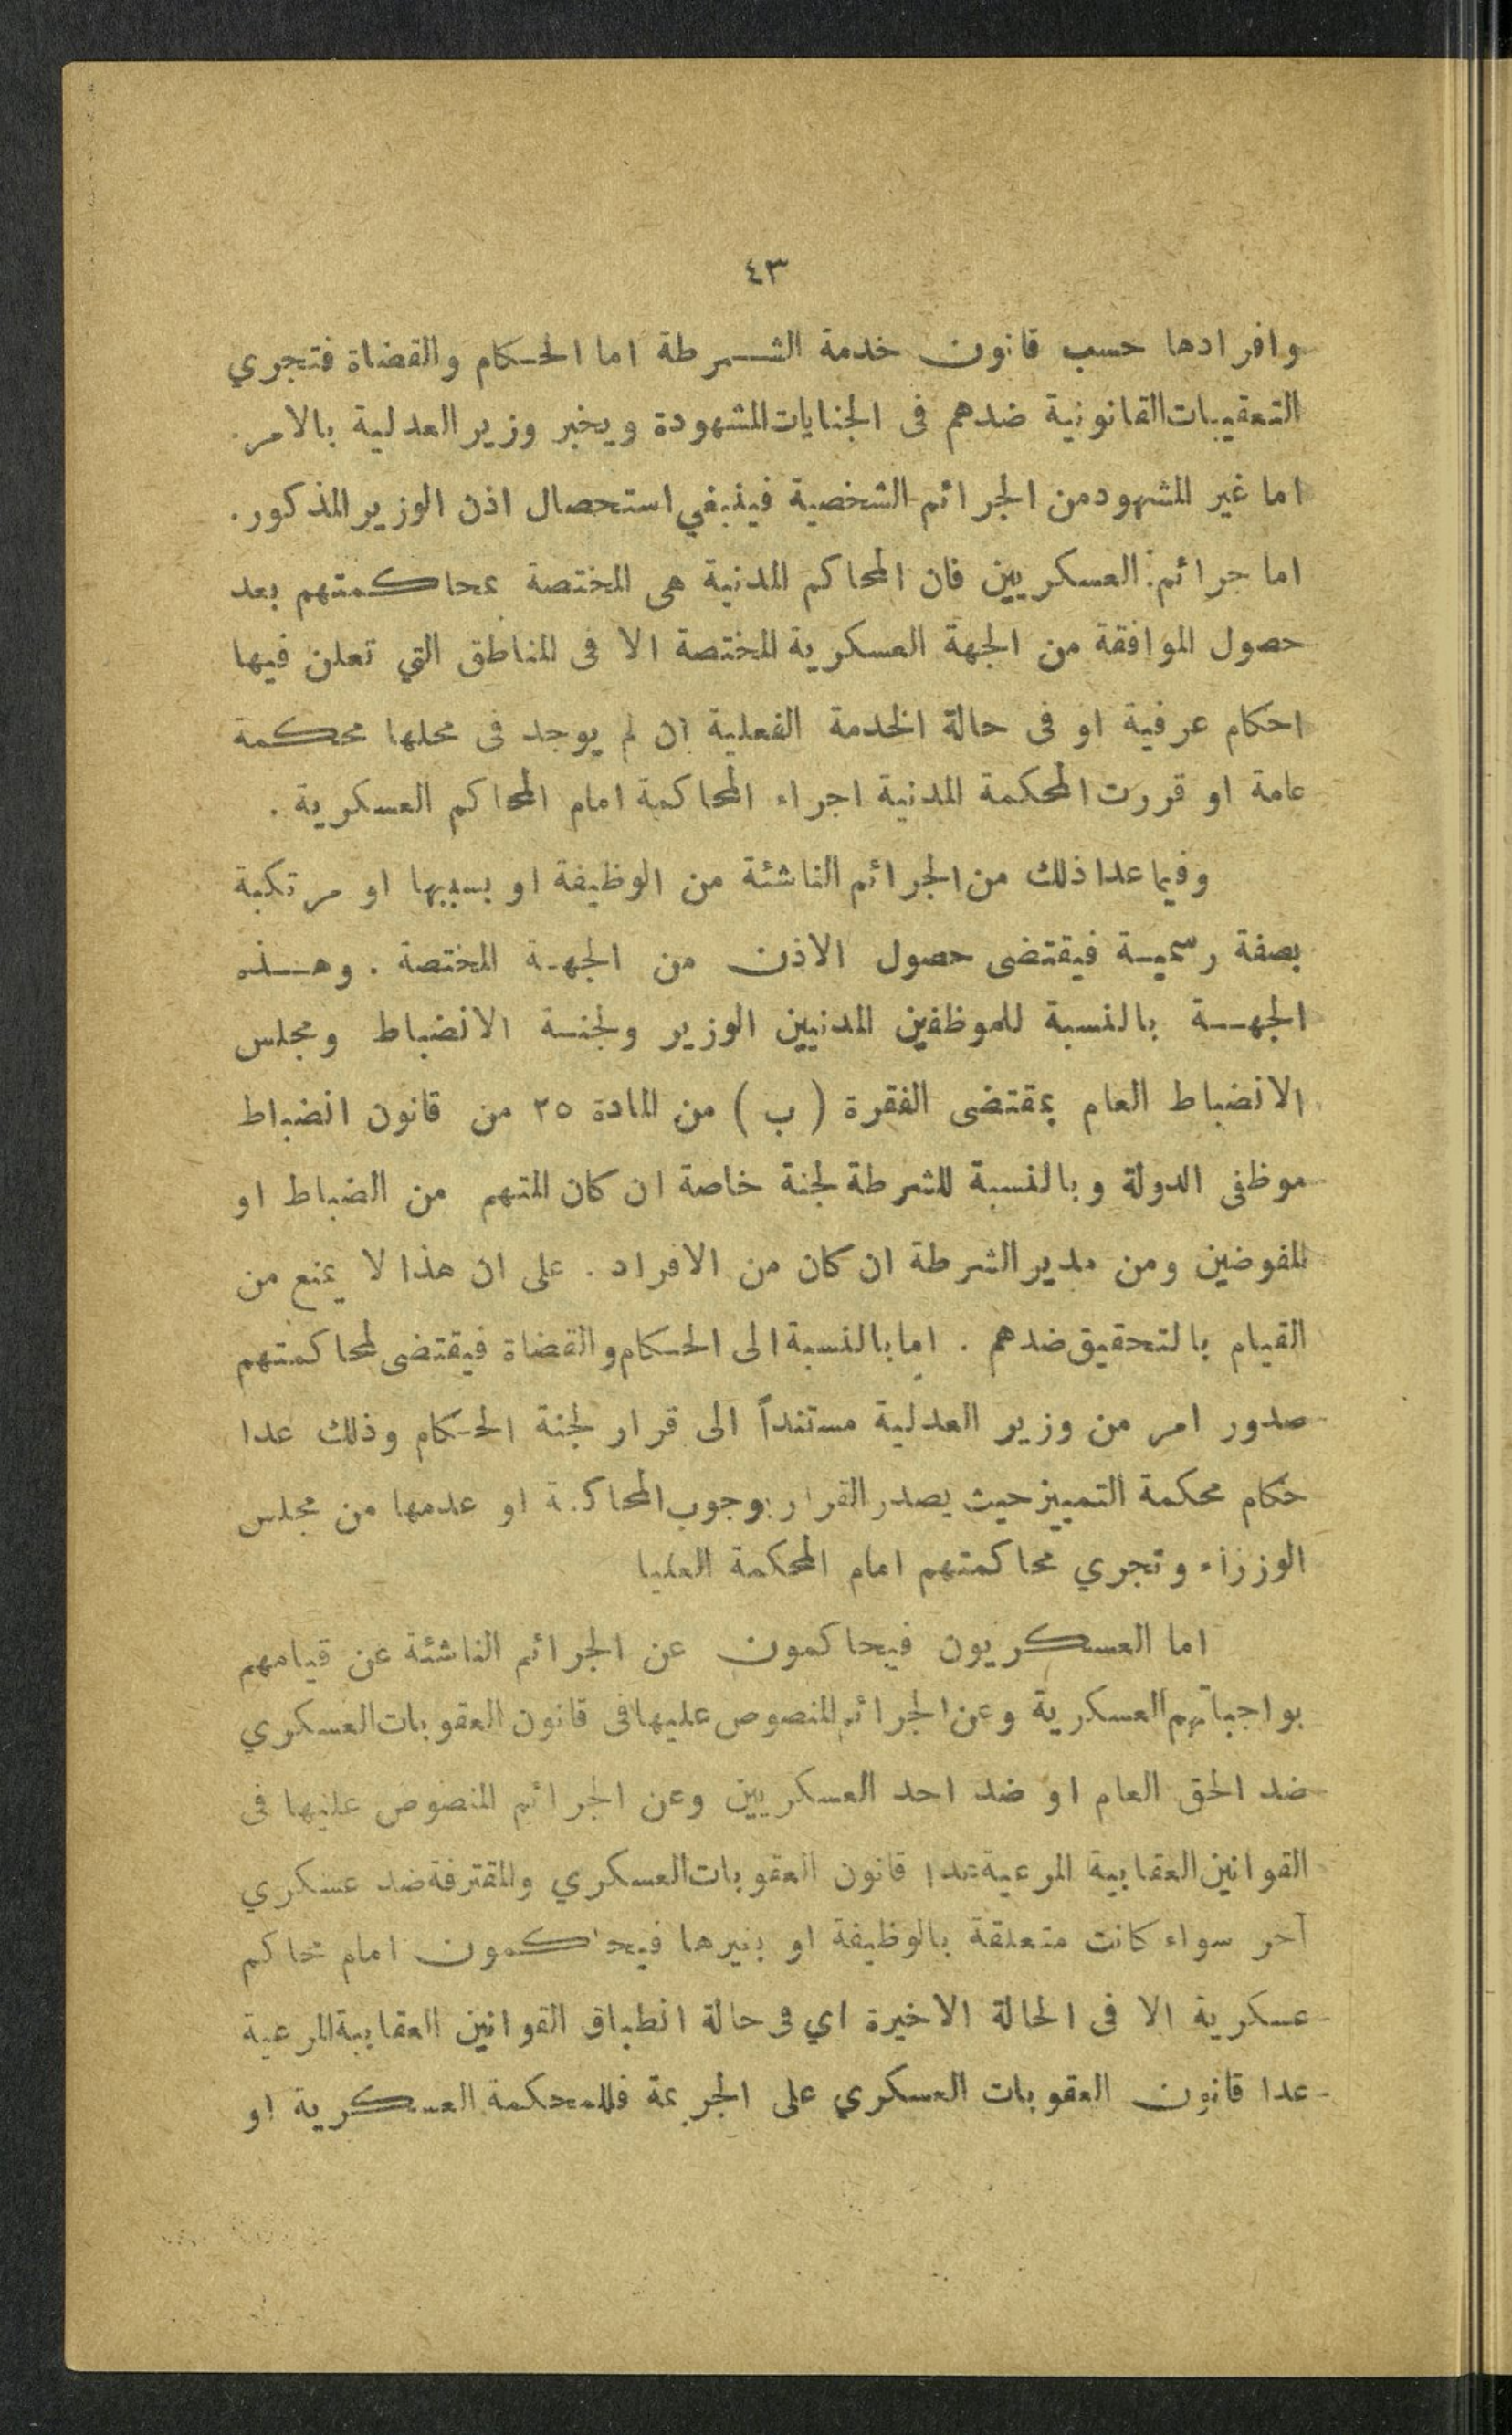 ٤٣
وافرادها حسب قانون خدمة الشرطة اما الحكام والقضاة فتجري
التعقيبات القانونية ضدهم فى الجنايات المشهودة ويخبر وزير العدلية بالامر.
اما غير المشهود من الجرائم الشخصية فينبغي استحصال اذن الوزير المذكور.
اما جرائم العسكريين فان المحاكم المدنية هى المختصة بمحاكمتهم بعد
حصول الموافقة من الجهة العسكرية المختصة الا فى المناطق التي تعلن فيها
احكام عرفية او فى حالة الخدمة الفعلية ان لم يوجد فى محلها محكمة
عامة او قررت المحكمة المدنية اجراء المحاكمة امام المحاكم العسكرية .
وفيما عدا ذلك من الجرائم الناشئة من الوظيفة او بسببها او مرتكبة
بصفة رسمية فيقتضى حصول الاذن من الجهة المختصة . وهذه
الجهة بالنسبة للموظفين المدنيين الوزير ولجنة الانضباط ومجلس
الانضباط العام بمقتضى الفقرة ( ب ) من المادة ٢٥ من قانون انضباط
موظفى الدولة وبالنسبة للشرطة لجنة خاصة ان كان المتهم من الضباط او
المفوضين ومن مدير الشرطة ان كان من الافراد . على ان هذا لا يمنع من
القيام بالتحقيق ضدهم . اما بالنسبة الى الحكام والقضاة فيقتضى لمحاكمتهم
صدور امر من وزير العدلية مستنداً الى قرار لجنة الحكام وذلك عدا
حكام محكمة التمييز حيث يصدر القرار بوجوب المحاكمة او عدمها من مجلس
الوزراء وتجري محاكمتهم امام المحكمة العليا
اما العسكريون فيحاكمون عن الجرائم الناشئة عن قيامهم
بواجباتهم العسكرية وعن الجرائم المنصوص عليها فى قانون العقوبات العسكري
ضد الحق العام او ضد احد العسكريين وعن الجرائم المنصوص عليها فى
القوانين العقابية المرعية عدا قانون العقوبات العسكري والمقترفة ضد عسكري
آخر سواء كانت متعلقة بالوظيفة او بغيرها فيحاكمون امام محاكم
عسكرية الا فى الحالة الاخيرة اي فى حالة انطباق القوانين العقابية المرعية
عدا قانون العقوبات العسكري على الجريمة فللمحكمة العسكرية او